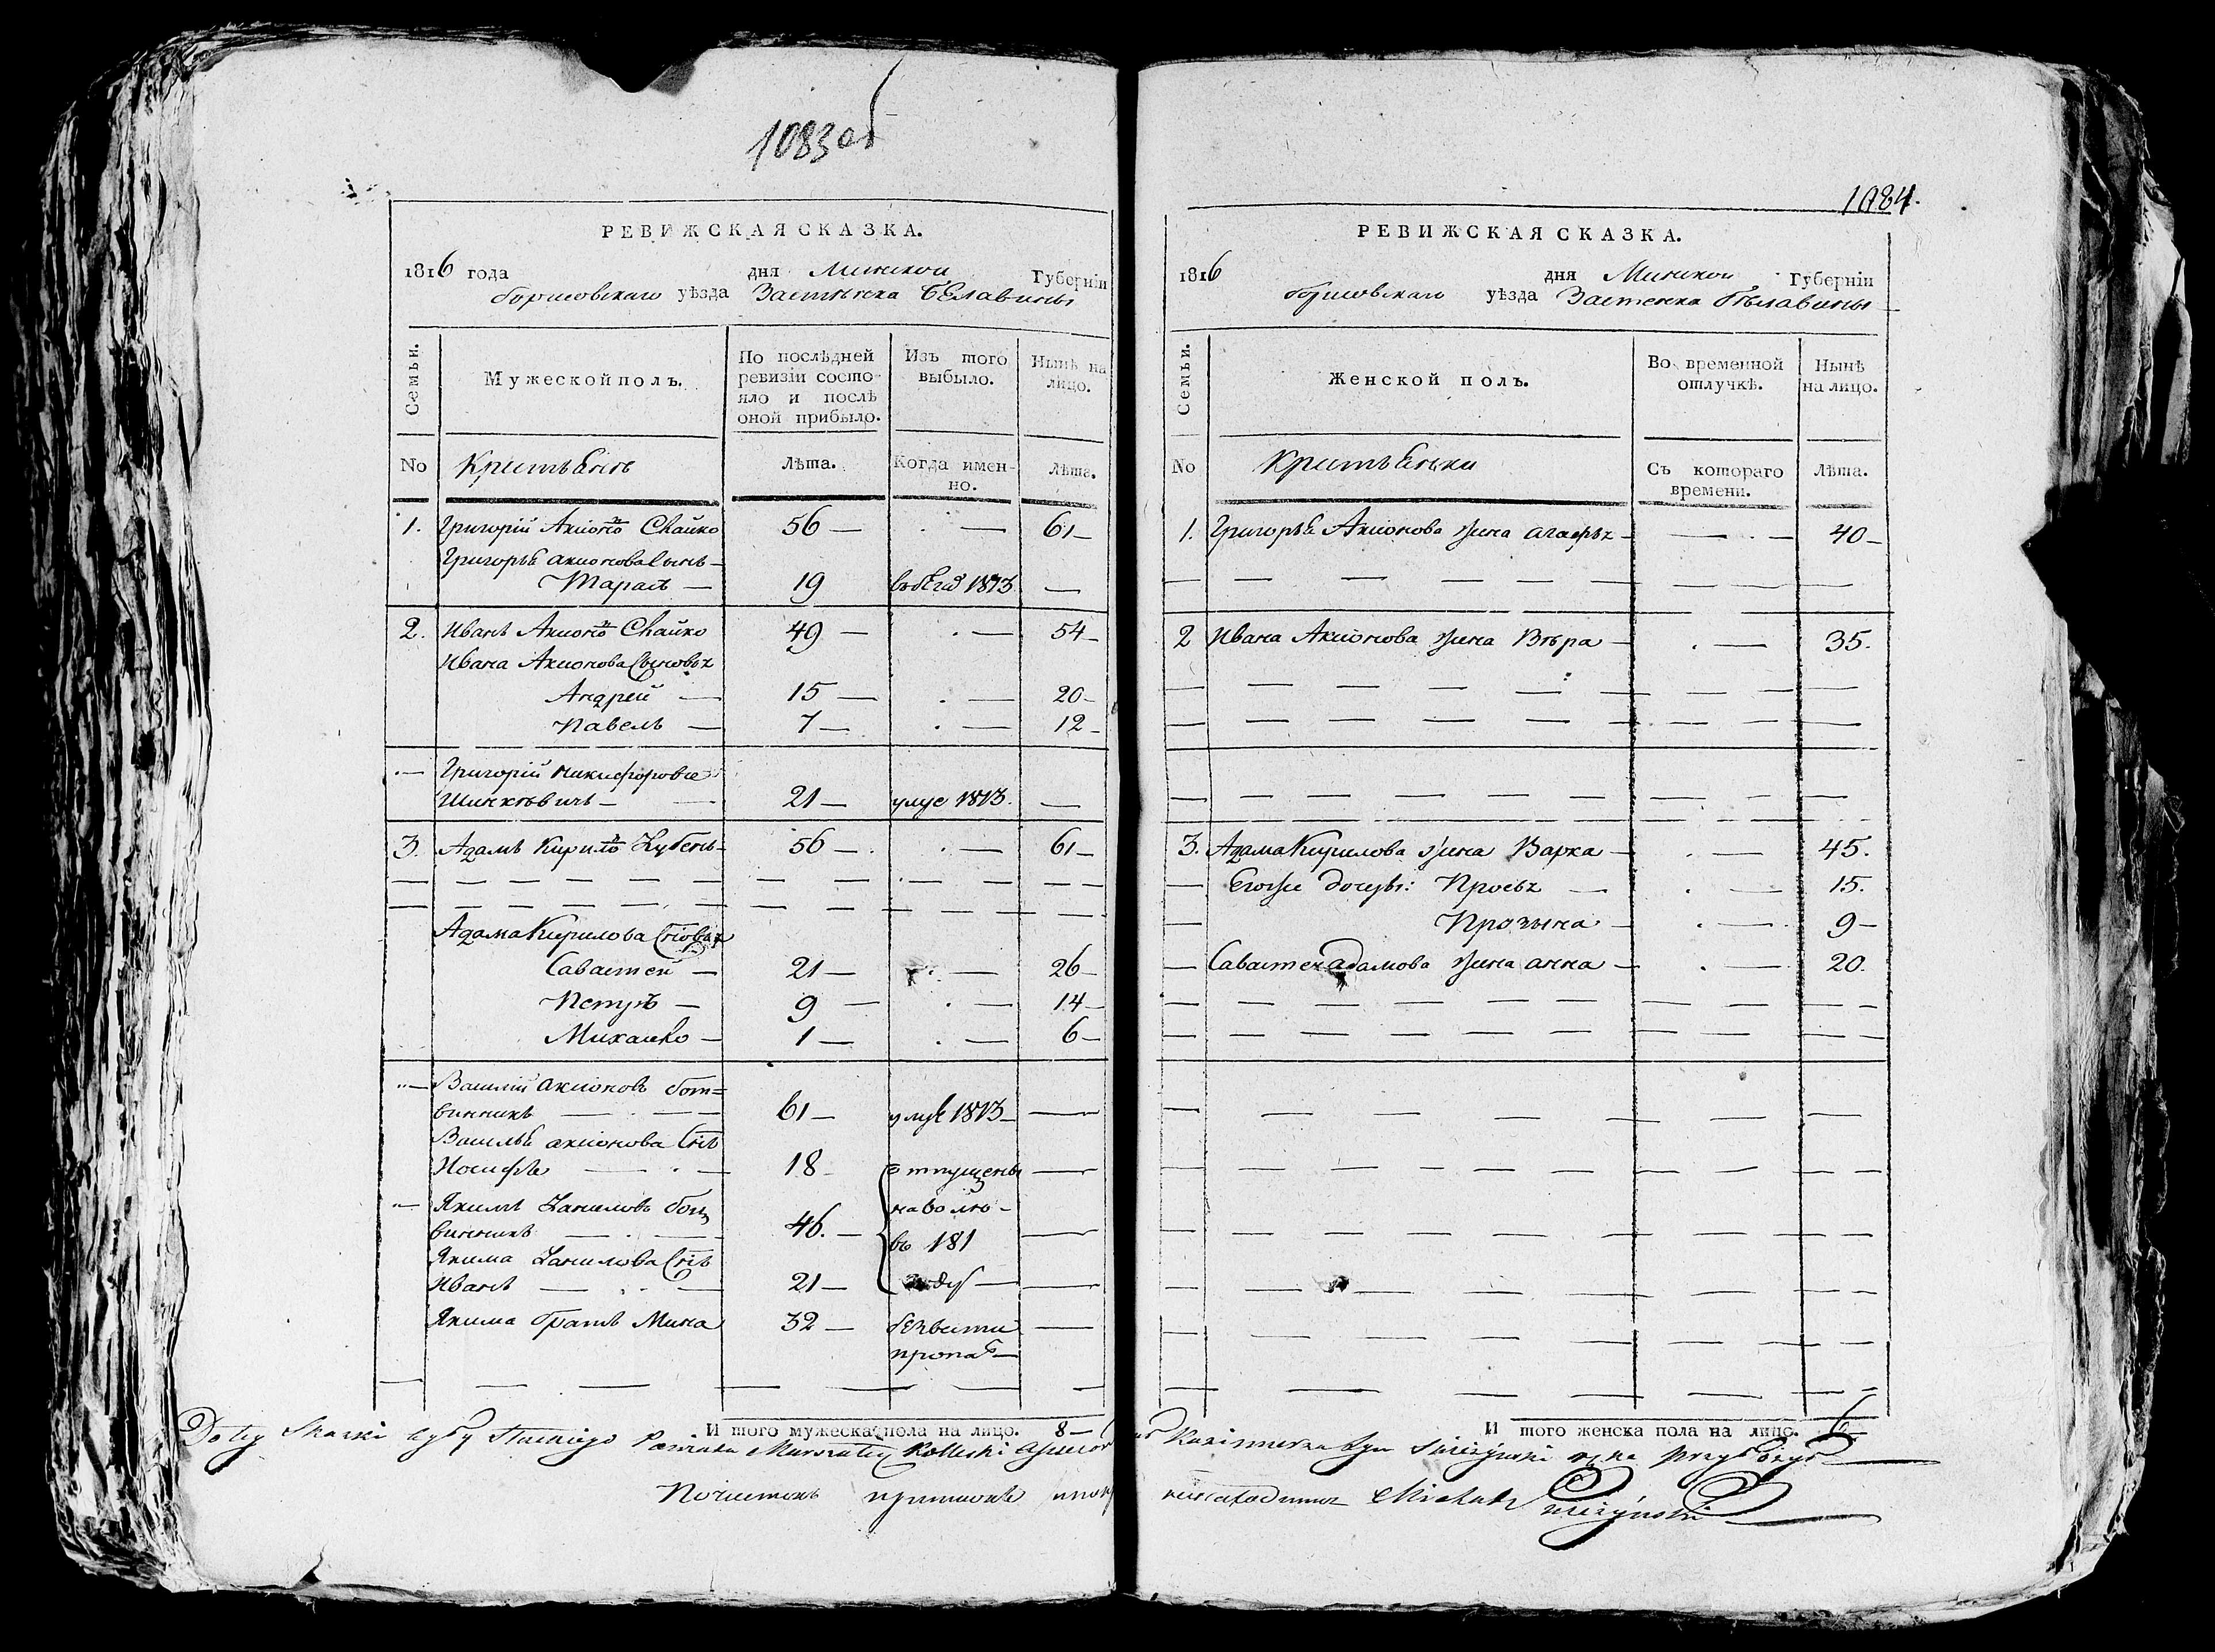 1083 об
РЕВИЖСКАЯ СКАЗКА.
1816 года дня Минской Губерніи
борисовскаго уѣзда Застѣнка Бѣлавины
Семьи.
Мужеской полъ.
По послѣдней ревизіи состояло и послѣ оной прибыло.
Изъ того выбыло.
Нынѣ на лицо.
No
Лѣта.
Когда именно.
Лѣта.
1. Григорій Аксіоно Скайко 56 — . — 61 —
Григорья аксіонова Сынъ —
Тарасъ — 19 въбѣга 1813 —
2. Иванъ Аксіоно Скайко 49 — . — 54 —
Ивана Аксіонова Сыновья
Андрей — 15 — . — 20 —
Павелъ — 7 — . — 12 —
Григорій никифоровъ
21 — умре 1813. —
3. Адамъ Кирило 56 — . — 61 —
Адама Кирилова
Савастей — 21 — . — 26 —
Петръ — 9 — . — 14 —
Михалко — 1 — . — 6 —
Василій аксіоновъ бот=
винникъ — 61 — умре 1813 — —
Василья аксіонова Снъ
Іосифъ — 18 — отпущены —
Якимъ Даниловъ бот
винникъ — 46. — на волю —
въ 181 —
Якима Данилова Снъ
Иванъ — 21 — году — —
Якима братъ Мина 32 — безвести —
пропа —
И того мужеска пола на лицо. 8 —
1084.
РЕВИЖСКАЯ СКАЗКА.
1816 дня Минской Губерніи
борисовскаго уѣзда Застенка бѣлавины
Семьи.
Женской полъ.
Во временной отлучкѣ.
Нынѣ на лицо.
No
Съ котораго времени.
Лѣта.
1. Григорья Аксіонова жена агафья — — . — 40 —
2 Ивана Аксіонова жена Вѣра — . — 35.
3. Адама Кирилова жена Варка — . — 45.
Егоже дочери: Просья — . — 15.
— 9 —
Савастея адамова жена анна — . — 20.
И того женска пола на лицо. 6.